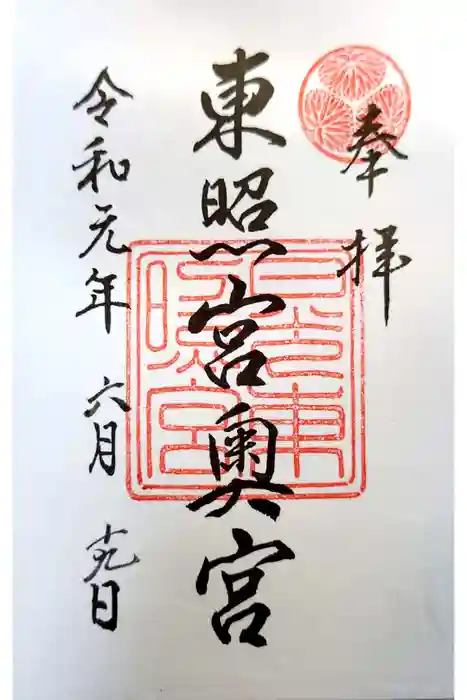 奉拝
東照宮奥宮
日光東照宮
令和元年六月十九日